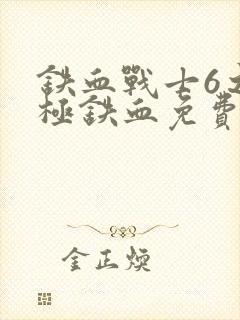 鉄血戰士6之
極鉄血免費
金正煥